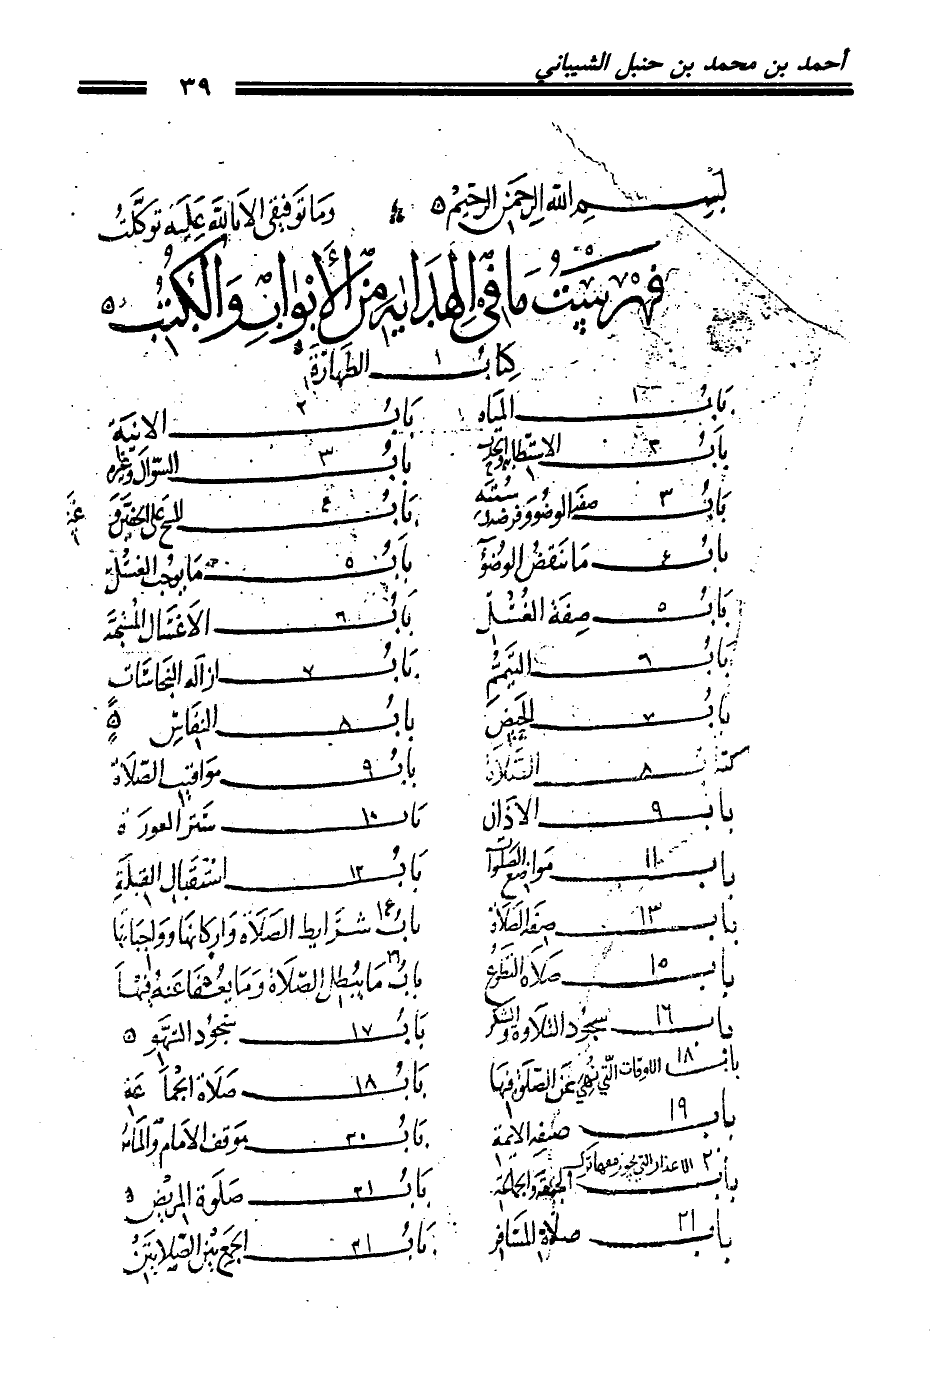 أحمد بن محمد بن حنبل الشيباني
٣٩
بسم الله الرحمن الرحيم وما توفيقي الا بالله عليه توكلت
فهرست ما في الهداية من الأبواب والكتب
كتاب ١ الطهارة
باب ١ المياه باب ٢ الانية
باب ٣ الاستطابة والحدث باب ٣ السؤال وغيره
باب ٣ صفة الوضوء وفرضه وسننه باب ٤ المسح على الخفين وغيره
باب ٤ ما ينقض الوضوء باب ٥ ما يوجب الغسل
باب ٥ صفة الغسل باب ٦ الاغسال المستحبة
باب ٦ التيمم باب ٧ ازاله النجاسات
باب ٧ الحيض باب ٨ النفاس
كتاب ٨ الصلاة باب ٩ مواقيت الصلاة
باب ٩ الاذان باب ١٠ ستر العورة
باب ١١ مواضع الصلوات باب ١٢ استقبال القبلة
باب ١٣ صفة الصلاة باب ١٤ شرايط الصلاة واركانها وواجباتها
باب ١٥ صلاه التطوع باب ما يبطل الصلاة وما يعفا عنه فيها
باب ١٦ سجود التلاوة والشكر باب ١٧ سجود السهو
باب ١٨ الاوقات التي نهي عن الصلوة فيها باب ١٨ صلاة الجماعة
باب ١٩ صفة الايمة باب ٢٠ موقف الامام والماموم
باب ٢٠ الاعذار التي يجوز معها ترك الجمعة والجماعة باب ٢١ صلوة المريض
باب ٢١ صلاة المسافر باب ٢١ الجمع بين الصلاتين